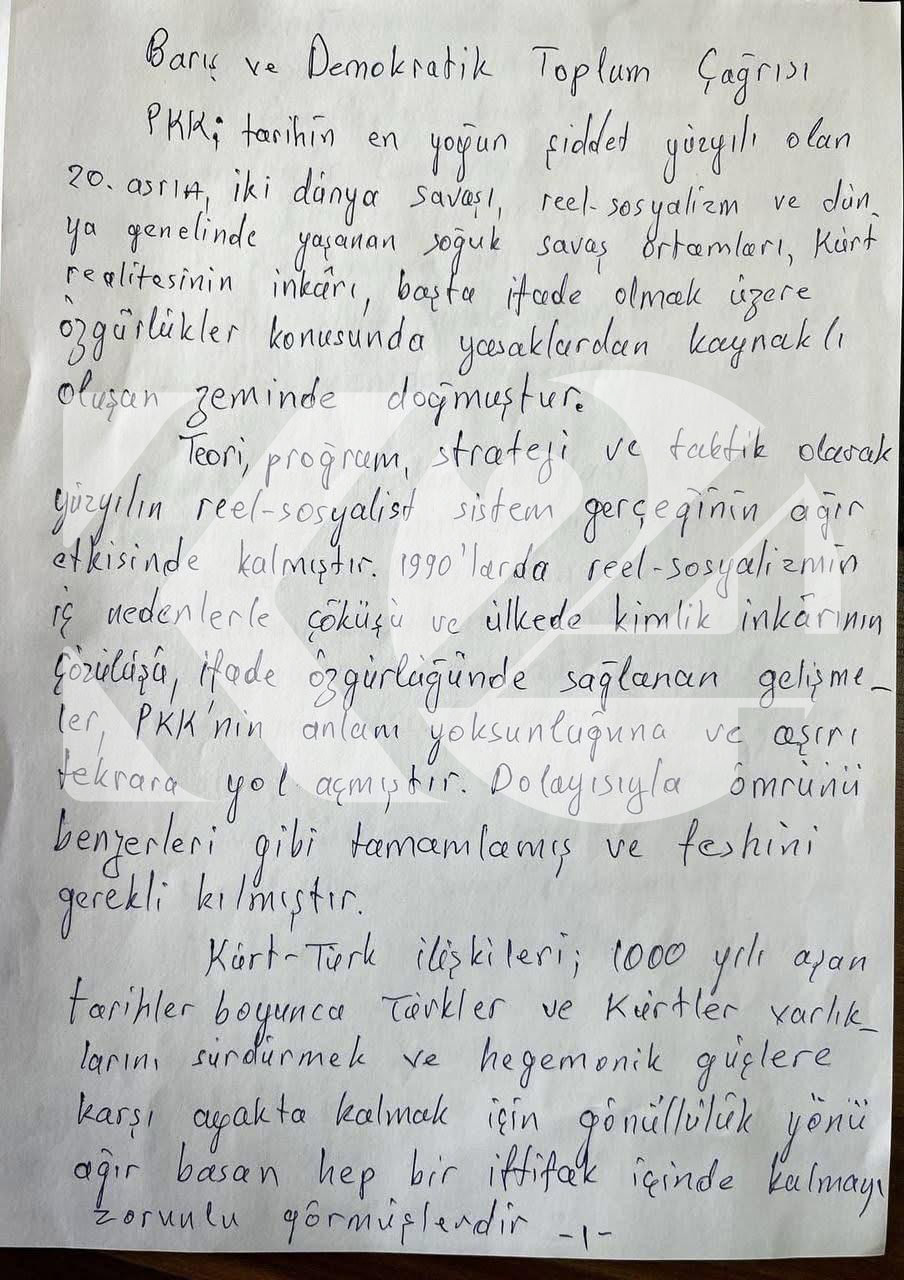 Barış ve Demokratik Toplum Çağrısı
PKK; tarihin en yoğun şiddet yüzyılı olan
20. asrın, iki dünya savaşı, reel-sosyalizm ve dün_
ya genelinde yaşanan soğuk savaş ortamları, Kürt
realitesinin inkârı, başta ifade olmak üzere
özgürlükler konusunda yasaklardan kaynaklı
oluşan zeminde doğmuştur.
Teori, program, strateji ve taktik olarak
yüzyılın reel-sosyalist sistem gerçeğinin ağır
etkisinde kalmıştır. 1990'larda reel-sosyalizmin
iç nedenlerle çöküşü ve ülkede kimlik inkârının
çözülüşü, ifade özgürlüğünde sağlanan gelişme_
ler, PKK'nin anlam yoksunluğuna ve aşırı
tekrara yol açmıştır. Dolayısıyla ömrünü
benzerleri gibi tamamlamış ve feshini
gerekli kılmıştır.
Kürt-Türk ilişkileri; 1000 yılı aşan
tarihler boyunca Türkler ve Kürtler varlık_
larını sürdürmek ve hegemonik güçlere
karşı ayakta kalmak için gönüllülük yönü
ağır basan hep bir ittifak içinde kalmayı
zorunlu görmüşlerdir -1-
K24